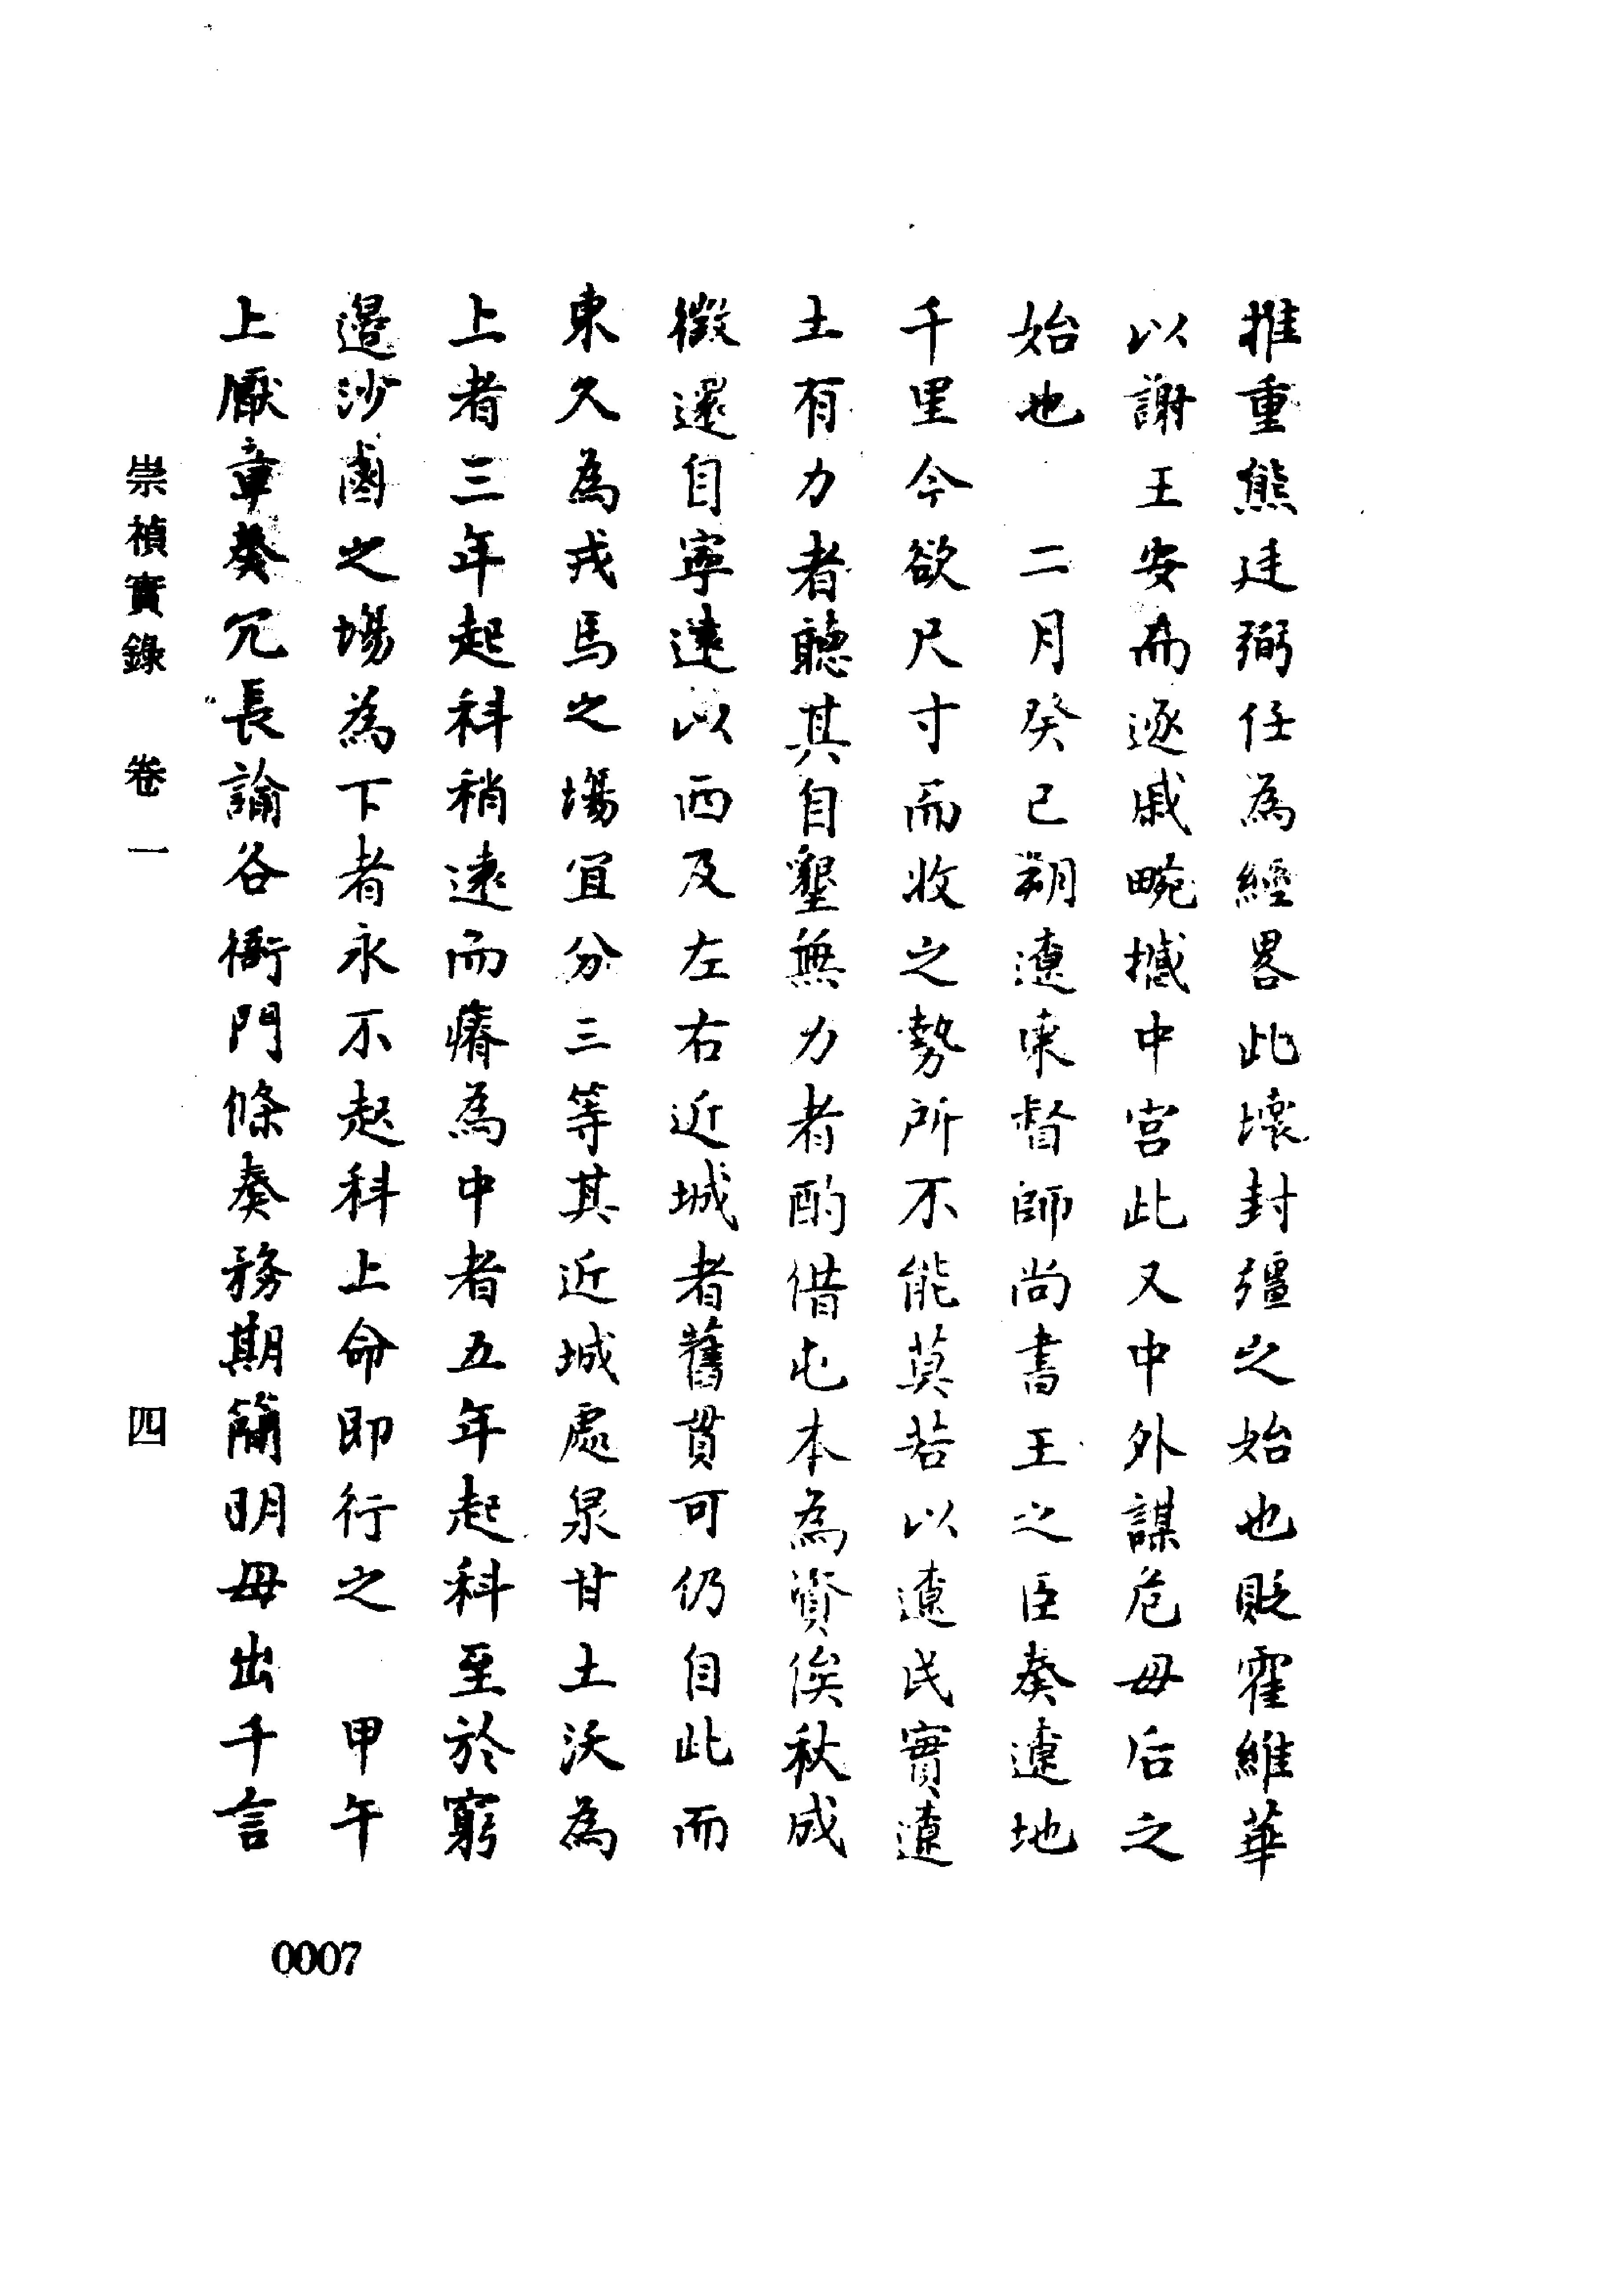 推重熊廷弼任為經畧此壞封疆之始也貶霍維華
以謝王安而逐戚畹撼中宮此又中外謀危母后之
始也　二月癸已朔遼東督師尚書王之臣奏遼地
千里今欲尺寸而收之勢所不能莫若以遼民實遼
土有力者聽其自墾無力者酌借屯本為資俟秋成
徵還自寧遠以西及左右近城者舊貫可仍自此而
東久為戎馬之場宜分三等其近城處泉甘土沃為
上者三年起科稍遠而瘠為中者五年起科至於窮
邊沙鹵之場為下者永不起科上命即行之　甲午
上厭章奏冗長諭各衙門條奏務期簡明毋出千言
崇禎實錄　卷一　四
0007